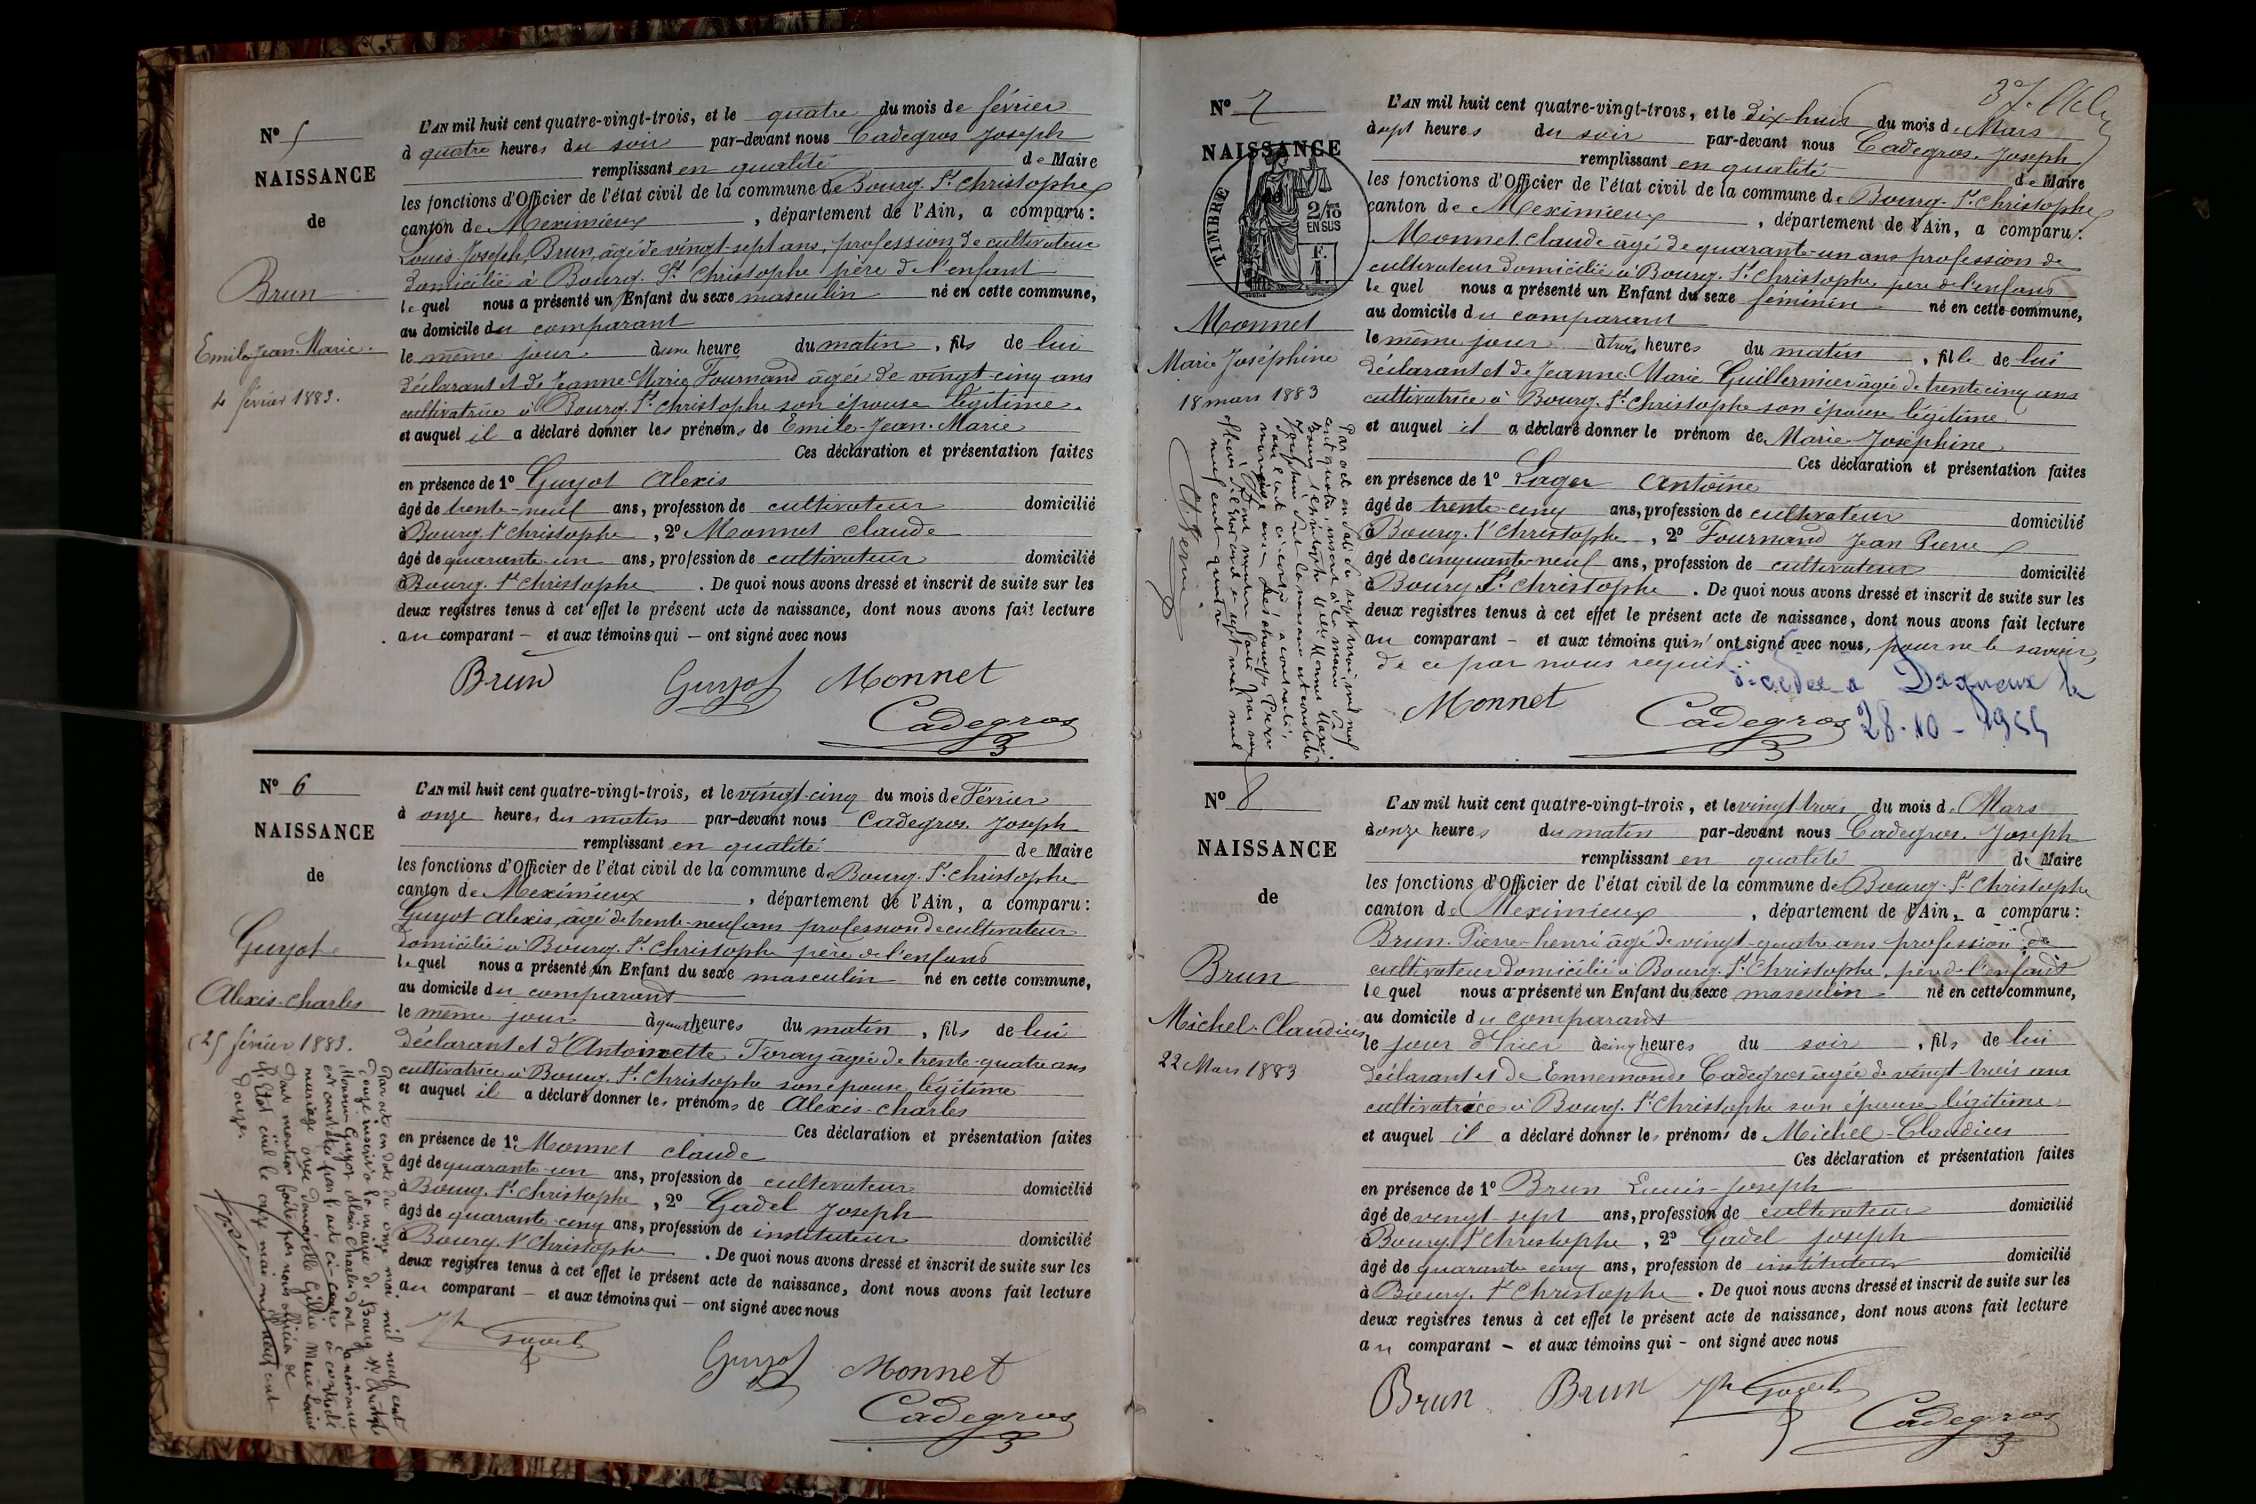 N° 5
NAISSANCE
de
Brun
Emile Jean Marie.
4 février 1883.
L'AN mil huit cent quatre-vingt-trois, et le quatre du mois de février
à quatre heures du soir par-devant nous Cadegros Joseph
remplissant en qualité de Maire
les fonctions d'Officier de l'état civil de la commune de Bourg-St Christophe
canton de Meximieux, département de l'Ain, a comparu:
Louis Joseph Brun, âgé de vingt-sept ans, profession de cultivateur
domicilié à Bourg-St Christophe père de l'enfant
lequel nous a présenté un Enfant du sexe masculin né en cette commune,
au domicile du comparant
le même jour à une heure du matin, fils de lui
déclarant et de Jeanne-Marie Fournand âgée de vingt-cinq ans
cultivatrice à Bourg-St Christophe son épouse légitime.
et auquel il a déclaré donner les prénoms de Emile-Jean-Marie
Ces déclaration et présentation faites
en présence de 1° Guyot Alexis
âgé de trente-neuf ans, profession de cultivateur domicilié
à Bourg St Christophe, 2° Monnet Claude
âgé de quarante-un ans, profession de cultivateur domicilié
à Bourg-St Christophe. De quoi nous avons dressé et inscrit de suite sur les
deux registres tenus à cet effet le présent acte de naissance, dont nous avons fait lecture
au comparant — et aux témoins qui — ont signé avec nous
Brun Guyot Monnet
Cadegros
N° 6
NAISSANCE
de
Guyot
Alexis-Charles
25 février 1883.
Par acte en date du onze mai mil neuf cent
douze inscrit à la mairie de Bourg St Christophe
Monsieur Guyot Alexis Charles dont la naissance
est constatée par l'acte ci-contre a contracté
mariage avec demoiselle Gillia Marie Louise
Dont mention faite par nous officier de
l'Etat civil le onze mai mil neuf cent
douze.
L'AN mil huit cent quatre-vingt-trois, et le vingt-cinq du mois de Février
à onze heures du matin par-devant nous Cadegros Joseph
remplissant en qualité de Maire
les fonctions d'Officier de l'état civil de la commune de Bourg-St Christophe
canton de Meximieux, département de l'Ain, a comparu:
Guyot Alexis, âgé de trente-neuf ans profession de cultivateur
domicilié à Bourg-St Christophe père de l'enfant
lequel nous a présenté un Enfant du sexe masculin né en cette commune,
au domicile du comparant
le même jour à quatre heures du matin, fils de lui
déclarant et d'Antoinette Toray âgée de trente-quatre ans
cultivatrice à Bourg-St Christophe son épouse légitime
et auquel il a déclaré donner les prénoms de Alexis-Charles
Ces déclaration et présentation faites
en présence de 1° Monnet Claude
âgé de quarante-un ans, profession de cultivateur domicilié
à Bourg-St Christophe, 2° Gadel Joseph
âgé de quarante-cinq ans, profession de instituteur domicilié
à Bourg-St Christophe. De quoi nous avons dressé et inscrit de suite sur les
deux registres tenus à cet effet le présent acte de naissance, dont nous avons fait lecture
au comparant — et aux témoins qui — ont signé avec nous
Guyot Monnet
Cadegros
N° 7
NAISSANCE
TIMBRE
2/10
EN SUS
F.
1
Monnet
Marie Joséphine
18 mars 1883
Par acte en date du sept mai, mil neuf
cent quatre, inscrit à la mairie de
Bourg St Christophe Melle Monnet Marie
Joséphine dont la naissance est constatée
par l'acte ci-contre, a contracté
mariage avec Pierre
Dont mention faite par nous
officier de l'état civil le sept mai mil
neuf cent quatre
L'AN mil huit cent quatre-vingt-trois, et le dix-huit du mois de Mars
à sept heures du soir par-devant nous Cadegros Joseph
remplissant en qualité de Maire
les fonctions d'Officier de l'état civil de la commune de Bourg-St Christophe
canton de Meximieux, département de l'Ain, a comparu:
Monnet Claude âgé de quarante-un ans profession de
cultivateur domicilié à Bourg-St Christophe père de l'enfant
lequel nous a présenté un Enfant du sexe féminin né en cette commune,
au domicile du comparant
le même jour à trois heures du matin, fille de lui
déclarant et de Jeanne Marie Guillermier âgée de trente cinq ans
cultivatrice à Bourg-St Christophe son épouse légitime
et auquel il a déclaré donner le prénom de Marie Joséphine
Ces déclaration et présentation faites
en présence de 1° Lager Antoine
âgé de trente-cinq ans, profession de cultivateur domicilié
à Bourg-St Christophe, 2° Fournand Jean Pierre
âgé de cinquante-neuf ans, profession de cultivateur domicilié
à Bourg St Christophe. De quoi nous avons dressé et inscrit de suite sur les
deux registres tenus à cet effet le présent acte de naissance, dont nous avons fait lecture
au comparant — et aux témoins qui n'ont signé avec nous, pour ne le savoir,
de ce par nous requis.
décédée à Dagneux le
28-10-1954
Monnet Cadegros
N° 8
NAISSANCE
de
Brun
Michel-Claudius
22 Mars 1883
L'AN mil huit cent quatre-vingt-trois, et le vingt trois du mois de Mars
à onze heures du matin par-devant nous Cadegros Joseph
remplissant en qualité de Maire
les fonctions d'Officier de l'état civil de la commune de Bourg-St Christophe
canton de Meximieux, département de l'Ain, a comparu:
Brun Pierre-henri âgé de vingt-quatre ans profession de
cultivateur domicilié à Bourg-St Christophe, père de l'enfant
lequel nous a présenté un Enfant du sexe masculin né en cette commune,
au domicile du comparant
le jour d'hier à cinq heures du soir, fils de lui
déclarant et de Ennemonde Cadegros âgée de vingt-trois ans
cultivatrice à Bourg-St Christophe son épouse légitime
et auquel il a déclaré donner les prénoms de Michel-Claudius
Ces déclaration et présentation faites
en présence de 1° Brun Louis-Joseph
âgé de vingt-sept ans, profession de cultivateur domicilié
à Bourg St Christophe, 2° Gadel Joseph
âgé de quarante cinq ans, profession de instituteur domicilié
à Bourg-St Christophe. De quoi nous avons dressé et inscrit de suite sur les
deux registres tenus à cet effet le présent acte de naissance, dont nous avons fait lecture
au comparant — et aux témoins qui — ont signé avec nous
Brun Brun
Cadegros